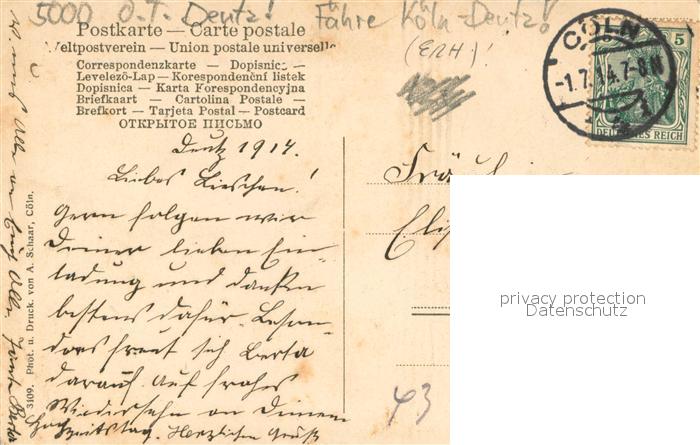 5000 O.T. Deutz! Fähre Köln-Deutz!
Postkarte — Carte postale
Weltpostverein — Union postale universelle
Correspondenzkarte — Dopisnic
Levelező-Lap — Korespondenční listek
Dopisnica — Karta Forespondencyjna
Briefkaart — Cartolina Postale —
Brefkort — Tarjeta Postal — Postcard
ОТКРЫТОЕ ПИСЬМО
CÖLN
-1.7.14.7-8N
5
DEUTSCHES REICH
Deutz 1914.
Liebes Lieschen!
Gern folgen wir
Deiner lieben Ein-
ladung und danken
bestens dafür. Beson-
ders freut sich Berta
darauf. Auf frohes
Wiedersehn an Deinem
Hochzeitstag. Herzlichen Gruß
3109. Phot. u. Druck. von A. Schaar, Cöln.
Fräul
Elis
43
privacy protection
Datenschutz